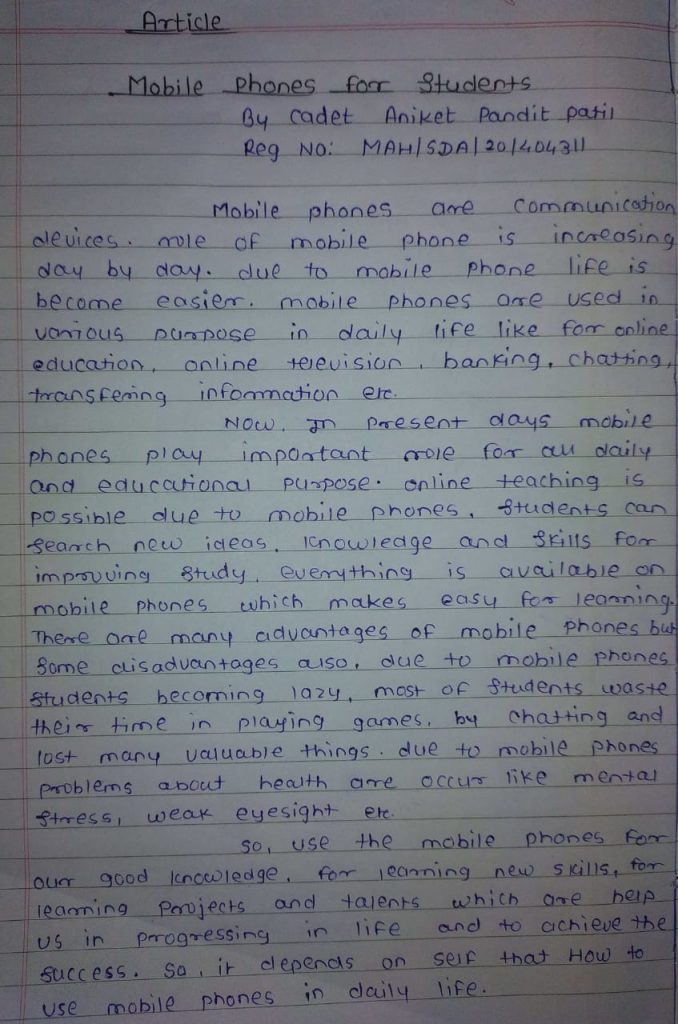 Article
Mobile Phones for Students
By Cadet Aniket Pandit Patil
Reg No: MAH/SDA/20/404311
Mobile phones are communication
devices. role of mobile phone is increasing
day by day. due to mobile phone life is
become easier. mobile phones are used in
various purpose in daily life like for online
education, online television, banking, chatting,
transfering information etc.
Now, In present days mobile
phones play important role for all daily
and educational purpose. online teaching is
possible due to mobile phones. Students can
search new ideas, knowledge and skills for
improving study. everything is available on
mobile phones which makes easy for learning.
There are many advantages of mobile phones but
some disadvantages also, due to mobile phones
students becoming lazy, most of students waste
their time in playing games, by chatting and
lost many valuable things. due to mobile phones
problems about health are occur like mental
stress, weak eyesight etc.
So, use the mobile phones for
our good knowledge, for learning new skills, for
learning projects and talents which are help
us in progressing in life and to achieve the
success. So, it depends on self that How to
use mobile phones in daily life.